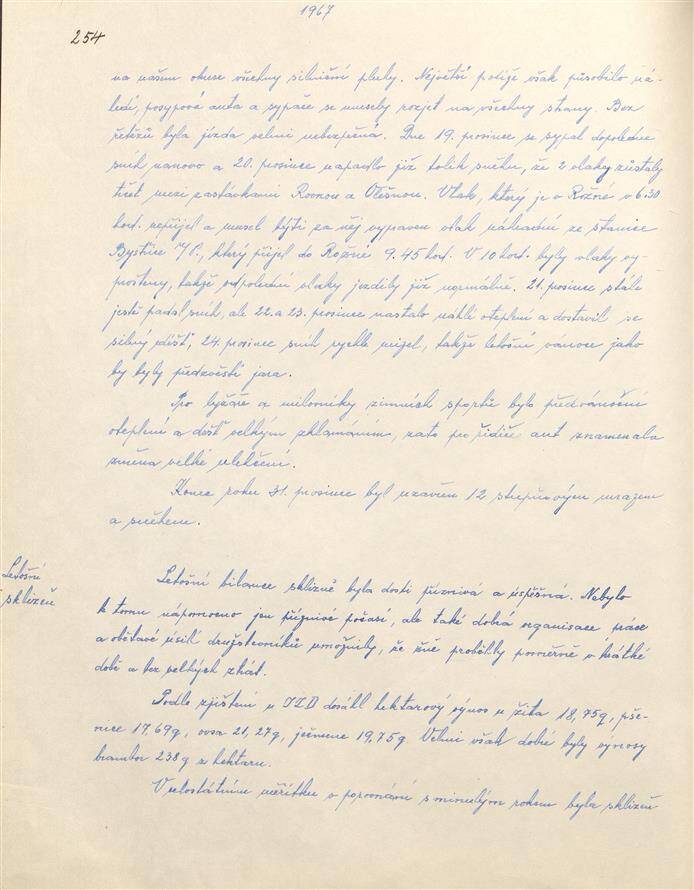 1967
254
na našem okrese všechny silniční pluhy. Největší potíže však působilo ná-
ledí, posypová auta a sypače se musely rozjet na všechny strany. Bez
řetězů byla jízda velmi nebezpečná. Dne 19. prosince se sypal dopoledne
sníh nanovo a 20. prosince napadlo již tolik sněhu, že 2 vlaky zůstaly
trčet mezi zastávkami Rovnou a Olešnou. Vlak, který je v Rožné v 6.30
hod. nepřijel a musel býti za něj vypraven vlak náhradní ze stanice
Bystřice n/P., který přijel do Rožné 9.45 hod. V 10 hod. byly vlaky vy-
proštěny, takže odpolední vlaky jezdily již normálně. 21. prosinec stále
ještě padal sníh, ale 22. a 23. prosince nastalo náhlé oteplení a dostavil se
silný déšť, 24. prosinec sníh rychle mizel, takže letošní vanoce jako
by byly předzvěstí jara.
Pro lyžaře a milovníky zimních sportů bylo předvánoční
oteplení a déšť velkým zklamáním, zato pro řidiče aut znamenala
změna velké ulehčení.
Konec roku 31. prosinec byl uzavřen 12 stupňovým mrazem
a sněhem.
Letošní
sklizeň
Letošní bilance sklizně byla dosti příznivá a úspěšná. Nebylo
k tomu nápomocno jen příznivé počasí, ale také dobrá organisace práce
a obětavé úsilí družstevníků umožnily, že žně proběhly poměrně v krátké
době a bez velkých ztrát.
Podle zjištění u JZD dosáhl hektarový výnos u žita 18,75q, pše-
nice 17,69q, ovsa 21,27q, ječmene 19,75q. Velmi však dobré byly výnosy
brambor 238q z hektaru.
V celostátním měřítku v porovnání s minulým rokem byla sklizeň